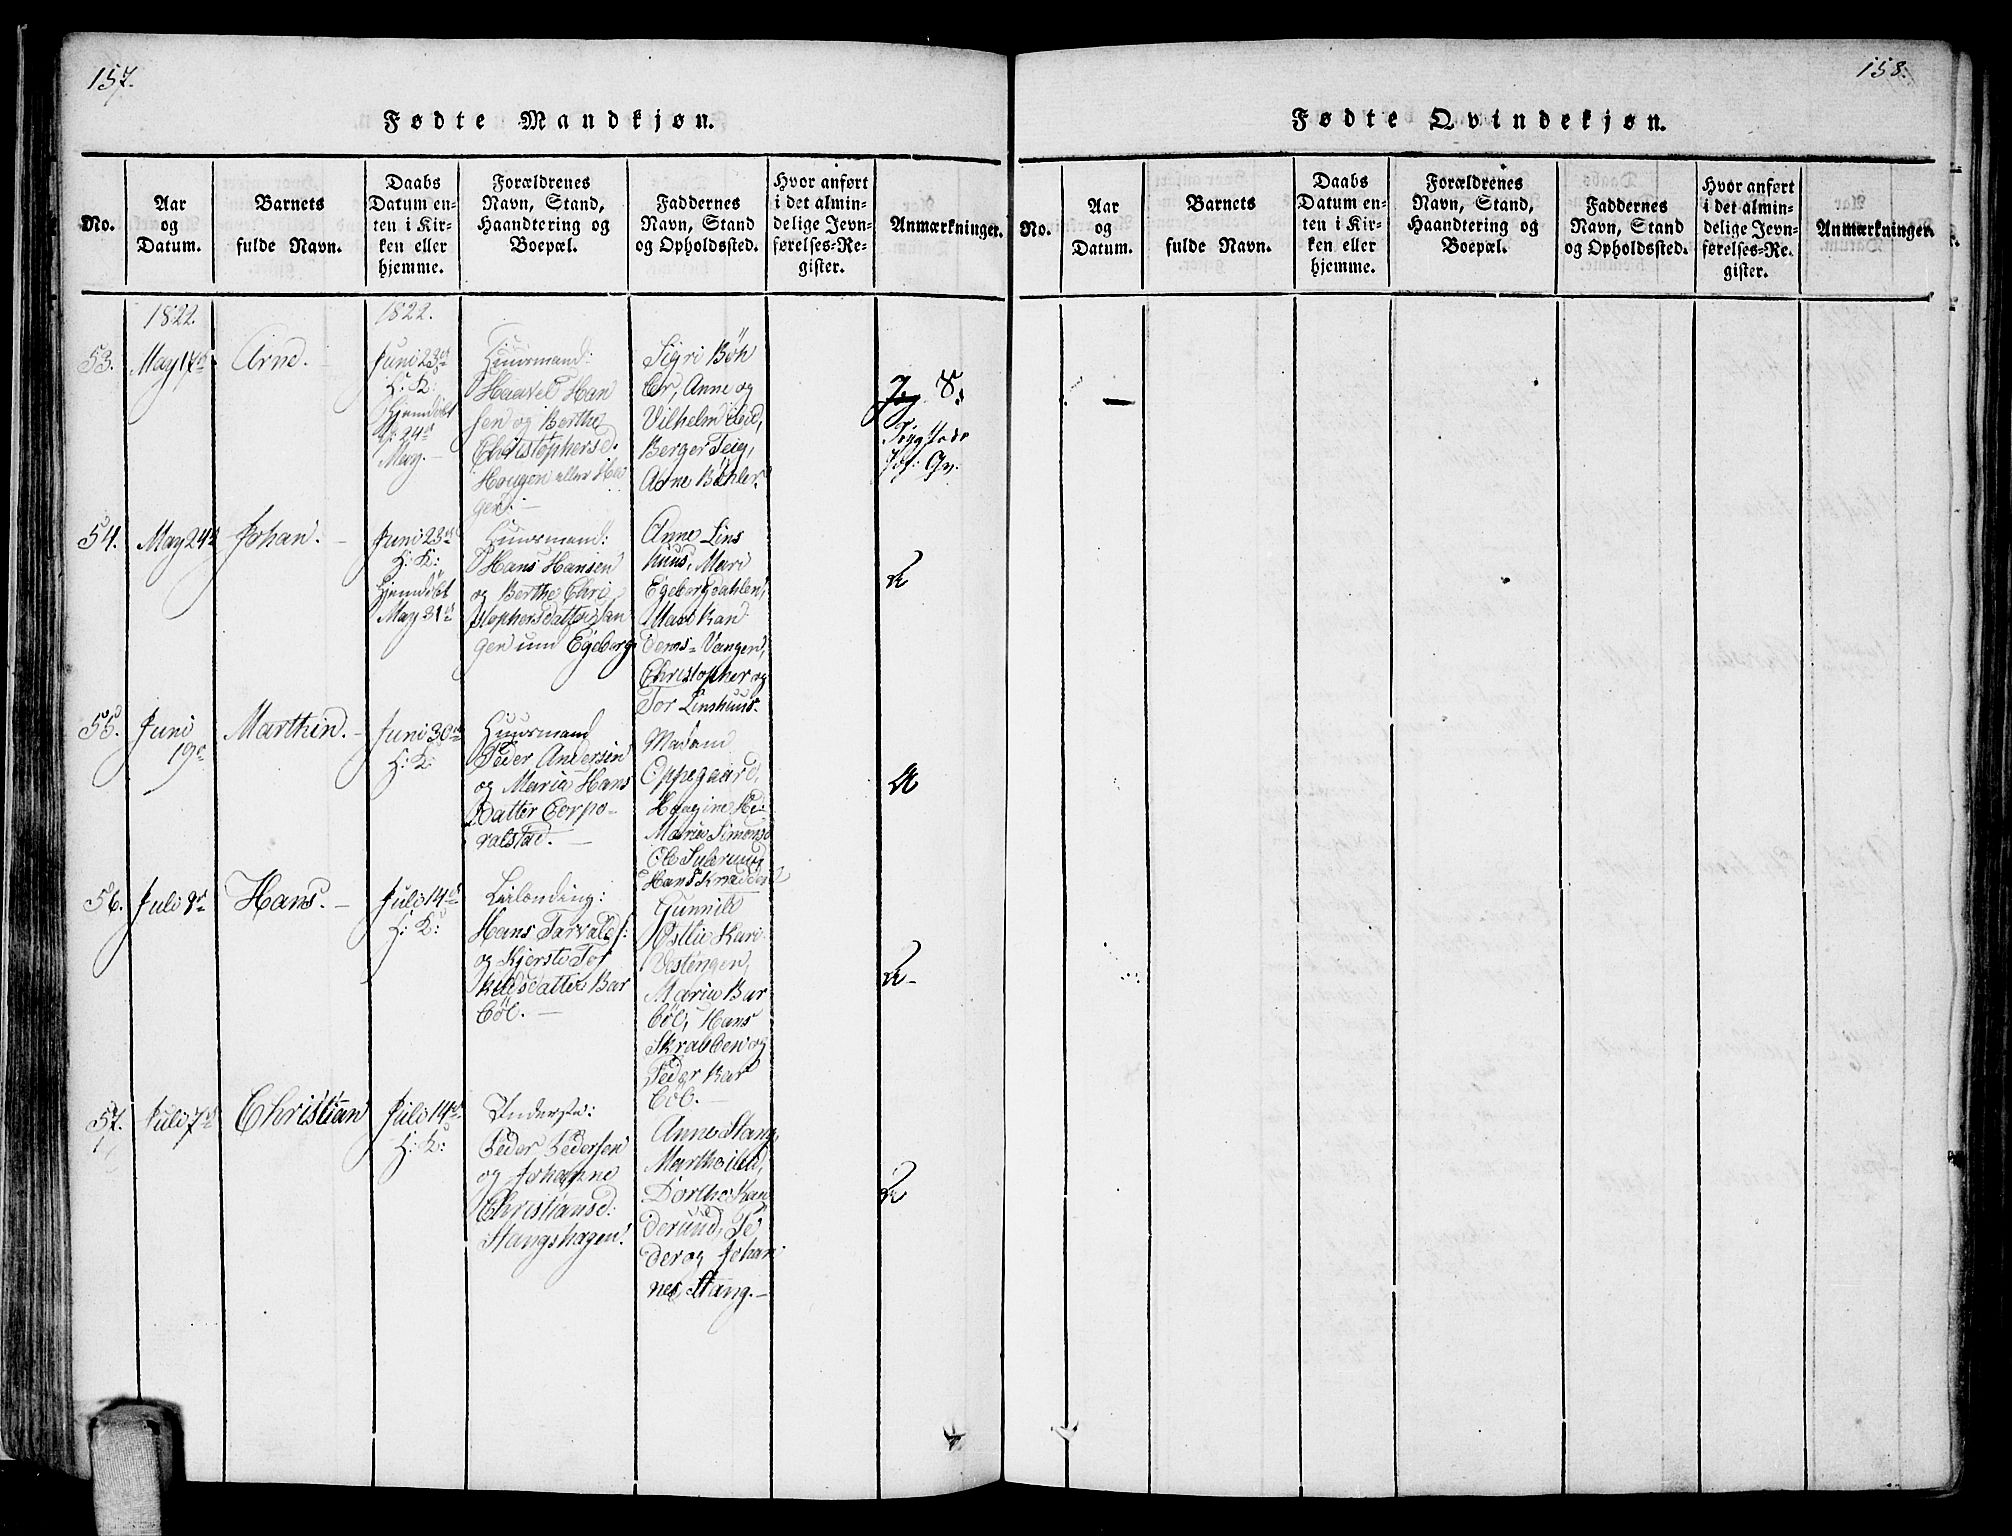 157.
Fødte Mandkjøn.
No.
Aar
og
Datum.
Barnets
fulde Navn.
Daabs
Datum en-
ten i Kir-
ken eller
hjemme.
Forældrenes
Navn, Stand,
Haandtering og
Boepæl.
Faddernes
Navn, Stand
og Opholdssted.
Hvor anført
i det almin-
delige Jevn-
førelses-Re-
gister.
Anmærkninger.
1822.
1822.
53.
May 17de
Arne. -
Juni 23de
H: K:
Hjemdøbt
24de
May. -
Huusmand:
Haavel Han
sen og Berthe
Christophersd.
Hougen eller Ha
gen. -
Sigri Bøh
ler, Anne og
Vilhelm
Berger Teig,
Arne Bøhler.
54.
May 24de
Johan. -
Juni 23de
H: K:
Hjemdøbt
May 31te
Huusmand:
Hans Hansen
og Berthe Chri
stophersdatter
gen um Egeberg
Anne Lins
huus, Mari
Egebergdahlen,
Mari Ran
dems-Vangen,
Christopher og
Tor Linshuus.
55.
Juni
19de
Marthin. -
Juni 30te
H: K:
Huusmand
Peder Andersen
og Maria Hans
Datter Corpo-
ralstad. -
Madam
Oppegaard,
Maria Simonsd
Ole
Hans
56.
Juli 8de
Hans. -
Juli 14de
H: K:
Leilending:
Hans Torvalds:
og Kjersti Tor
kildsdatter Bar
bøl. -
Gunnild
Østlie Kari
Vestengen,
Maria Bar
bøl, Hans
Skrabben og
Peder Bar
bøl. -
57.
Juli 7de
Christian
Juli 14de
H: K:
Inderste:
Peder Pedersen
og Johanne
Christiansd:
Stangshagen.
Anne Stang,
Marthe
Dorthe Ran
derund, Pe
der og Johan
nes Stang. -
158.
Fødte Qvindekjøn.
No.
Aar
og
Datum.
Barnets
fulde Navn.
Daabs
Datum en-
ten i Kir-
ken eller
hjemme.
Forældrenes
Navn, Stand,
Haandtering og
Boepæl.
Faddernes
Navn, Stand
og Opholdssted.
Hvor anført
i det almin-
delige Jevn-
førelses-Re-
gister.
Anmærkninger.